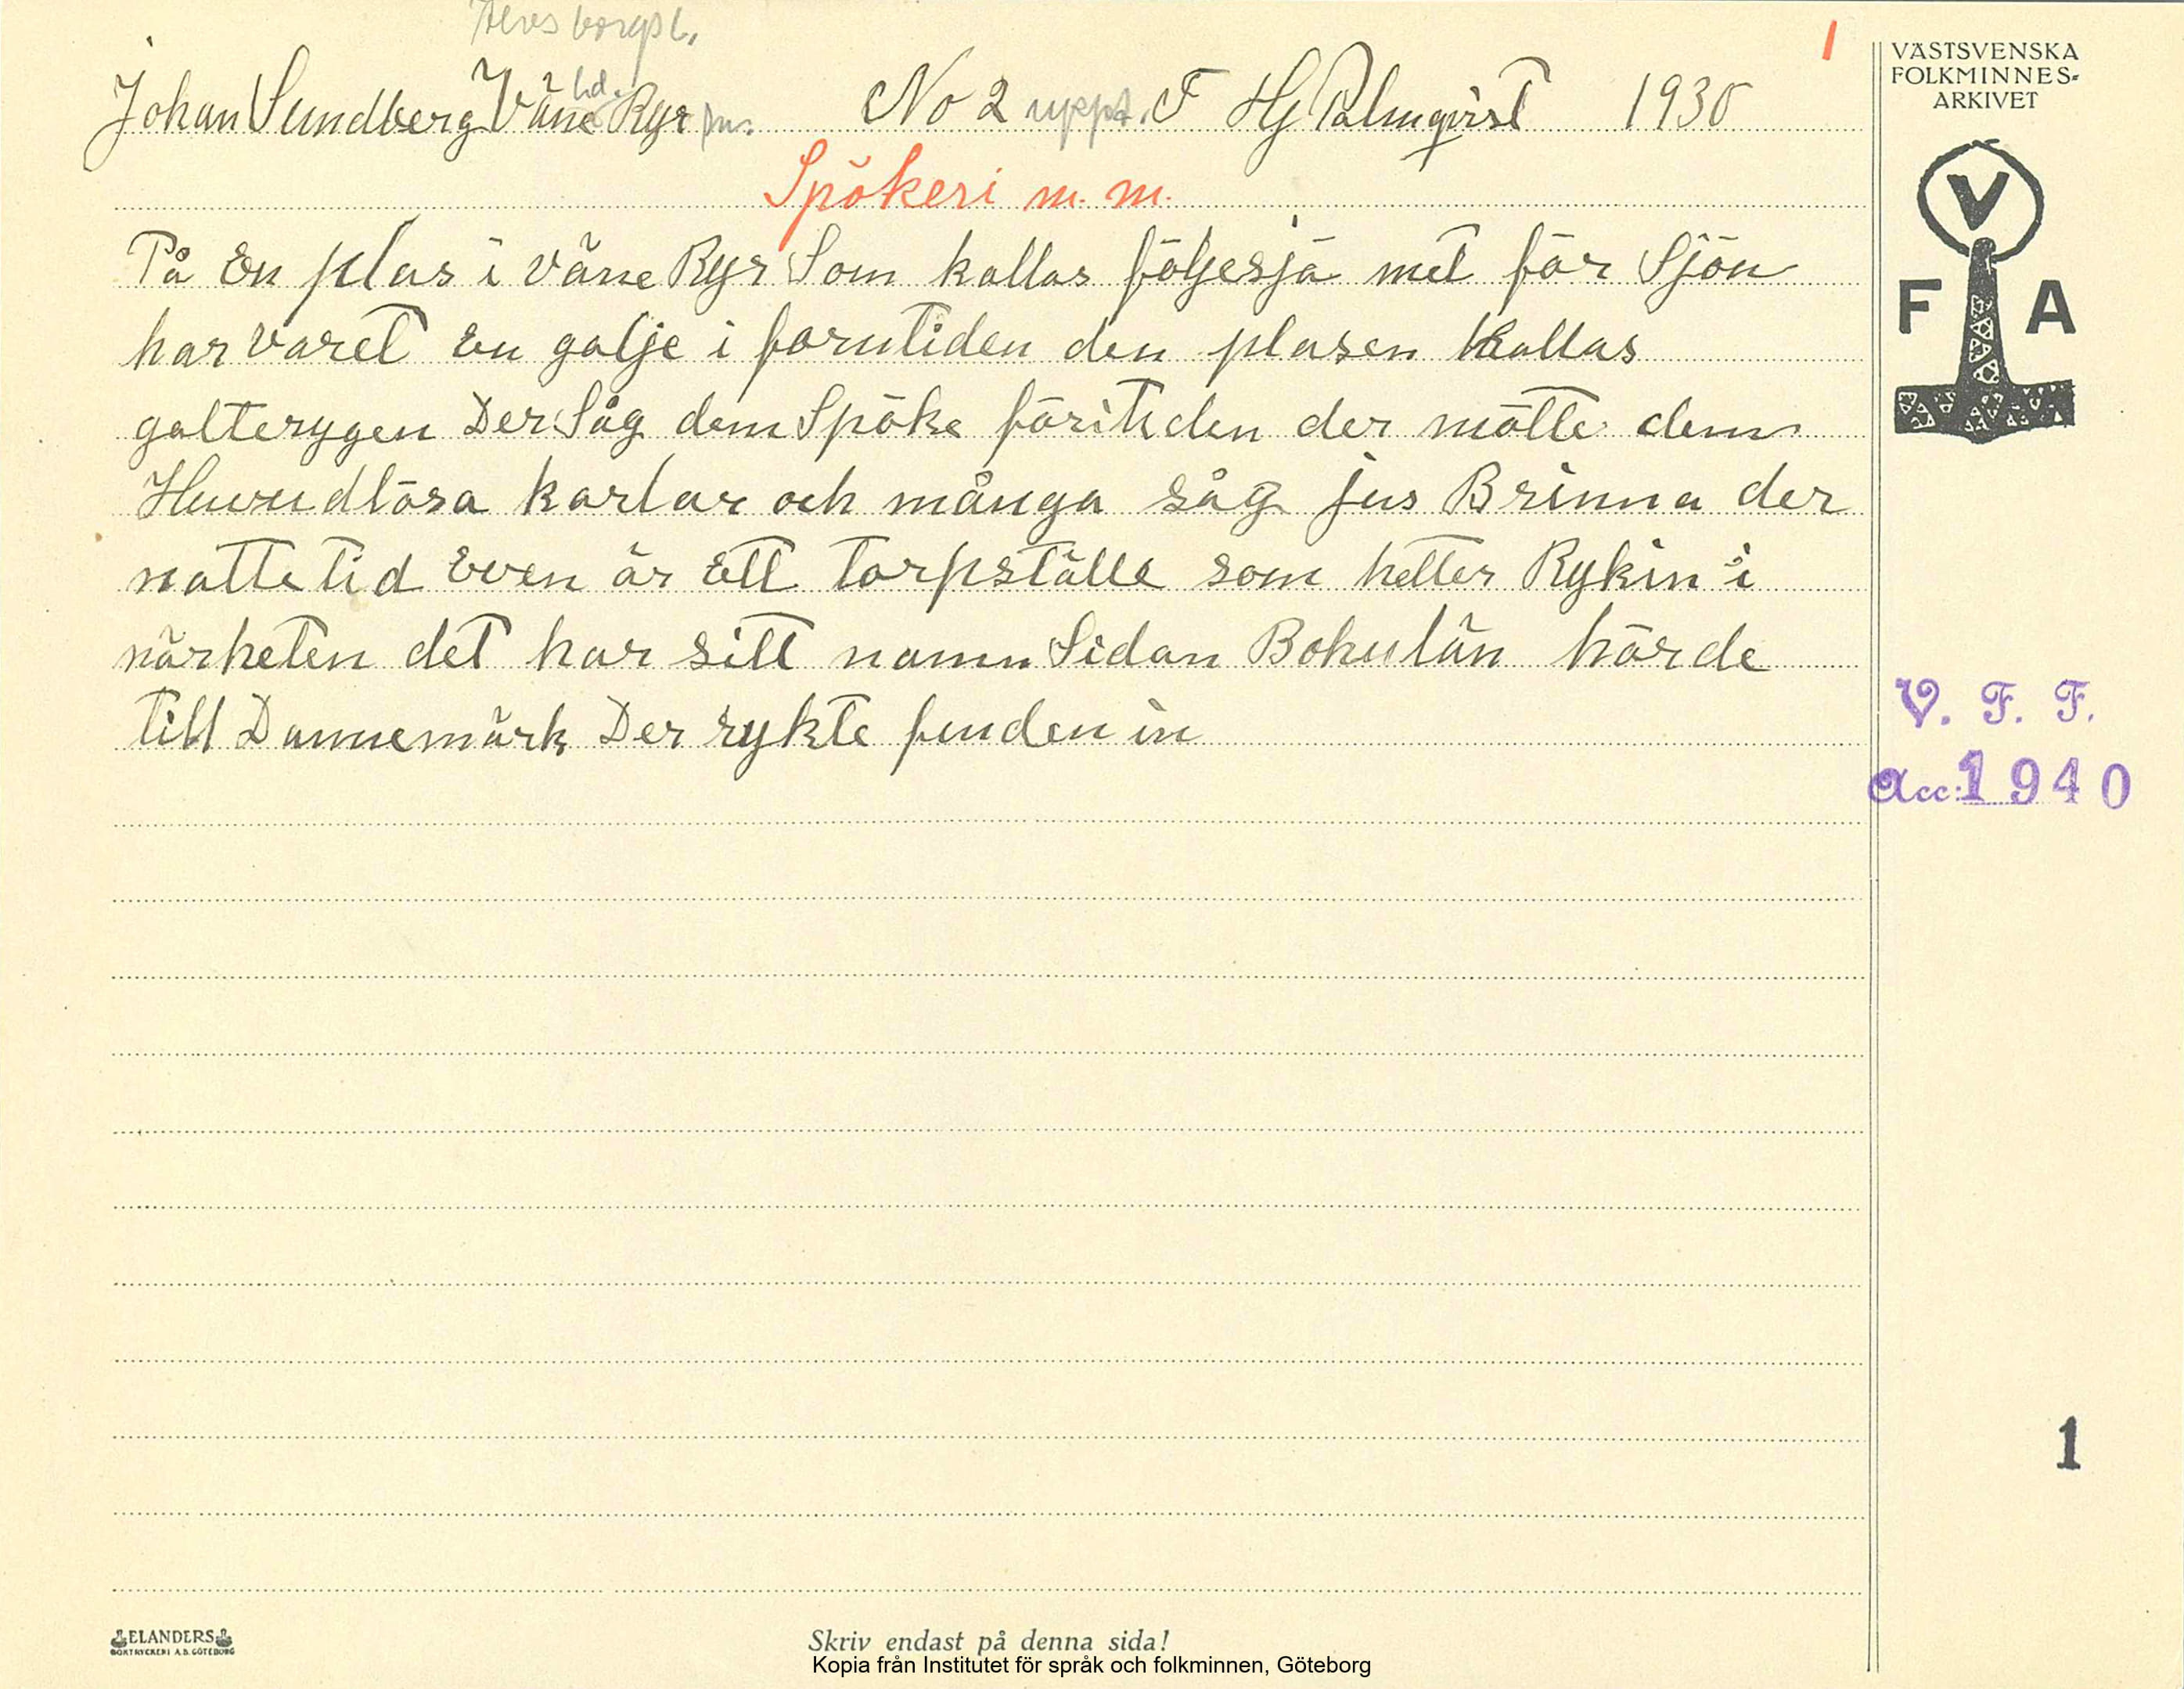 Älvsborgsl.
Johan Sundberg Väne hd. Ryr sn. No 2 uppt. F Hj Palmqvist 1930
1
Spökeri m. m.
På En plas i väne Ryr Som kallas följesjä met för Sjön
har varet En galje i forntiden den plasen kallas
galterygen Der Såg dem Spöke föritiden der mötte dem
Huvudlösa karlar och många såg jus Brinna der
nattetid Even är Ett torpställe som hetter Rykin i
närheten det har sitt namn Sidan Bohulän hörde
till Dannemark Der rykte fenden in
VÄSTSVENSKA
FOLKMINNES-
ARKIVET
V
F A
V. F. F.
Acc: 1940
1
ELANDERS
BOKTRYCKERI A.B. GÖTEBORG
Skriv endast på denna sida!
Kopia från Institutet för språk och folkminnen, Göteborg